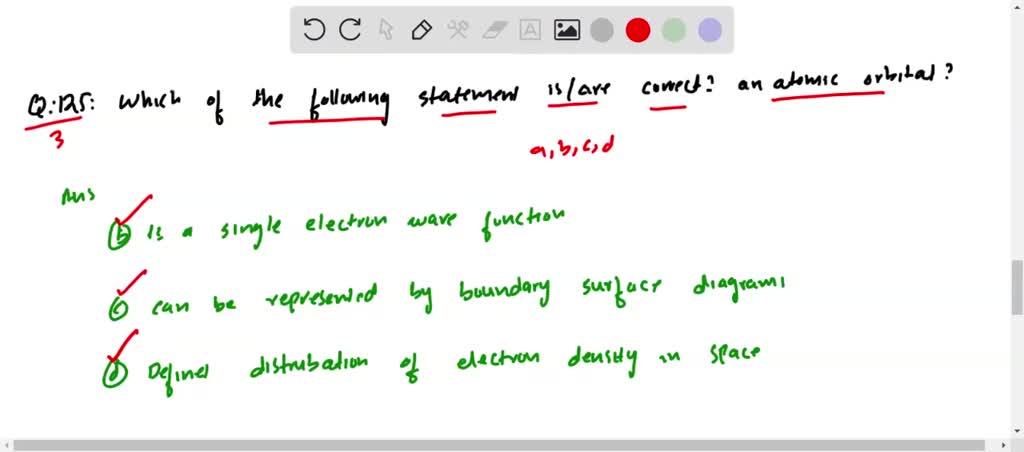 Q:125: which of the following statement is/are correct? an atomic orbital?
3
a, b, c, d
Ans
b is a single electron wave function
c can be represented by boundary surface diagrams
d Defines distrubation of electron density in space